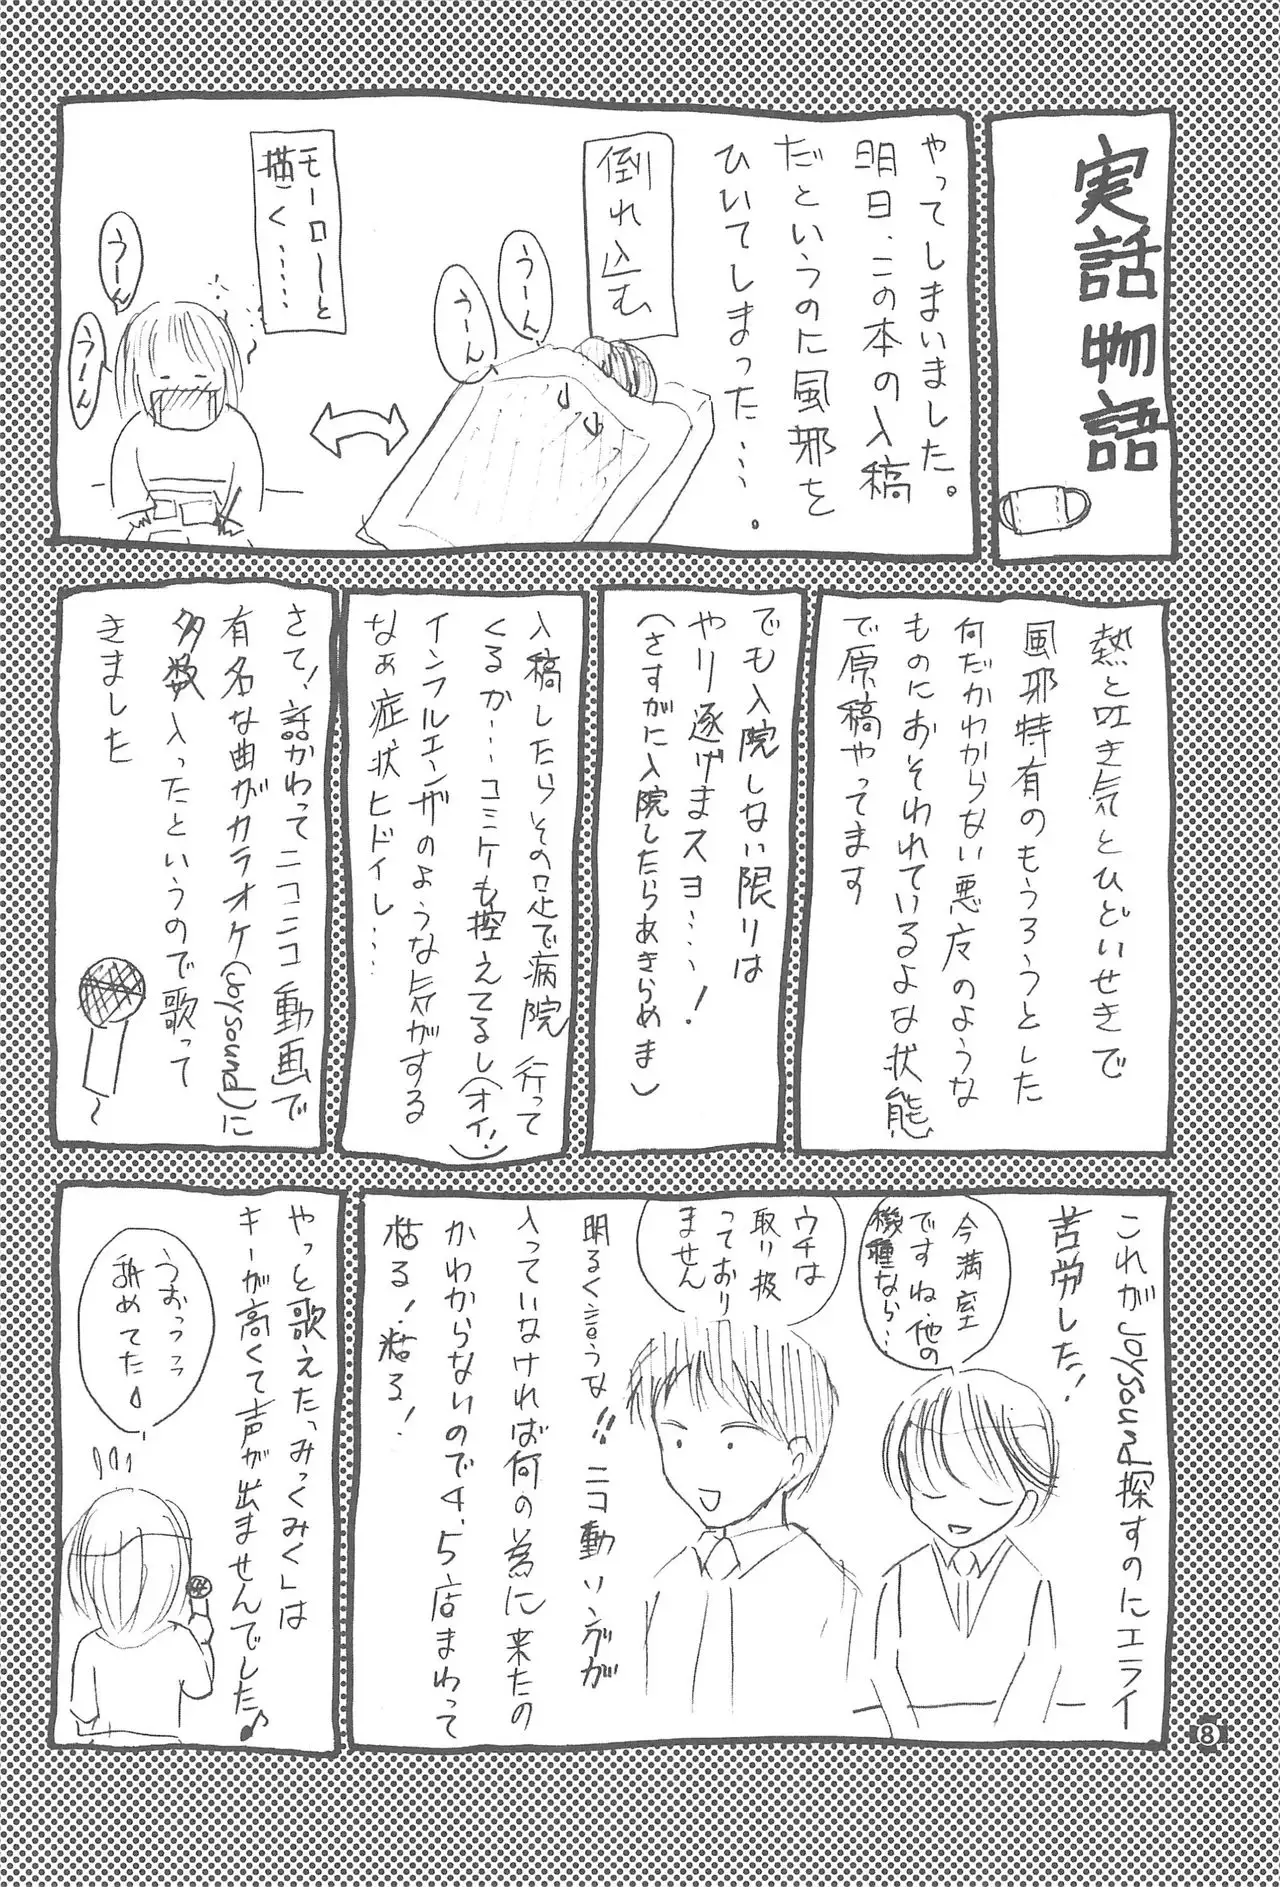 実話物語
やってしまいました。
明日、この本の入稿
だというのに風邪を
ひいてしまった……。
倒れ込む
うーん
うーん
モーローと
描く……
うーん
うーん
熱と吐き気とひどいせきで
風邪特有のもうろうとした
何だかわからない悪夜のような
ものにおそわれているような状態
で原稿やってます
でも入院しない限りは
やり遂げまスヨ…!
(さすがに入院したらあきらめま)
入稿したらその足で病院行って
くるか…コミケも控えてるし(オイ!)
インフルエンザのような気がする
なぁ症状ヒドイし…
さて!話かわってニコニコ動画で
有名な曲がカラオケ(joysound)に
多数入ったというので歌って
きました
これがJoysound探すのにエライ
苦労した!
今満室
ですね、他の
機種なら…
ウチは
取り扱
っており
ません
明るく言うな!!ニコ動ソングが
入っていなければ何の為に来たの
かわからないので4、5店まわって
粘る!粘る!
やっと歌えたっみっくみく」は
キーが高くて声が出ませんでした♪
うおっっっ
舐めてた
8